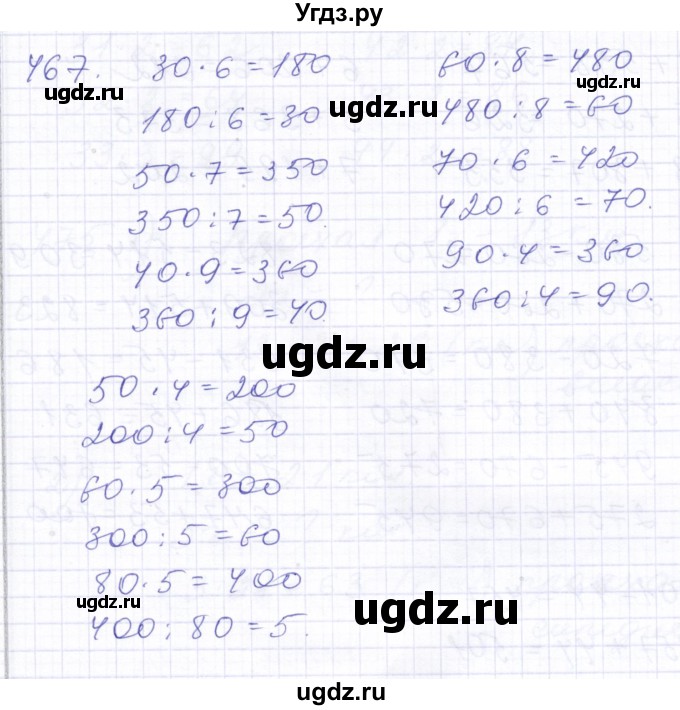 Угдз.ру
467. 30 · 6 = 180
ugdz.ru
180 : 6 = 30
50 · 7 = 350
350 : 7 = 50.
40 · 9 = 360
360 : 9 = 40.
60 · 8 = 480
ugdz.ru
ugdz.ru
480 : 8 = 60
70 · 6 = 420
420 : 6 = 70.
90 · 4 = 360
360 : 4 = 90.
ugdz.ru
50 · 4 = 200
200 : 4 = 50
60 · 5 = 300
300 : 5 = 60
80 · 5 = 400
ugdz.ru
400 : 80 = 5.
ugdz.ru
ugdz.ru